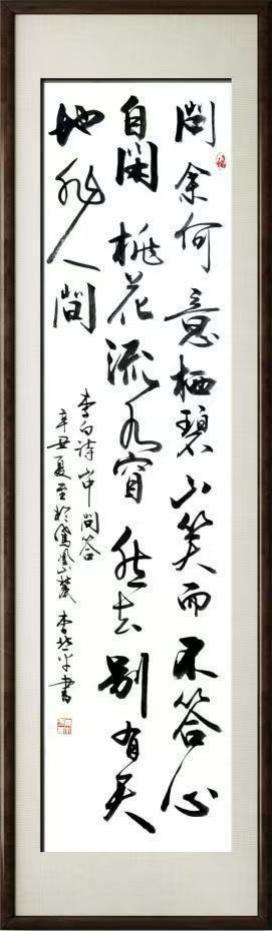 問余何意栖碧山笑而不答心
自閑桃花流水窅然去别有天
地非人間
李白诗山中问答
辛丑夏至於山麓 李平書